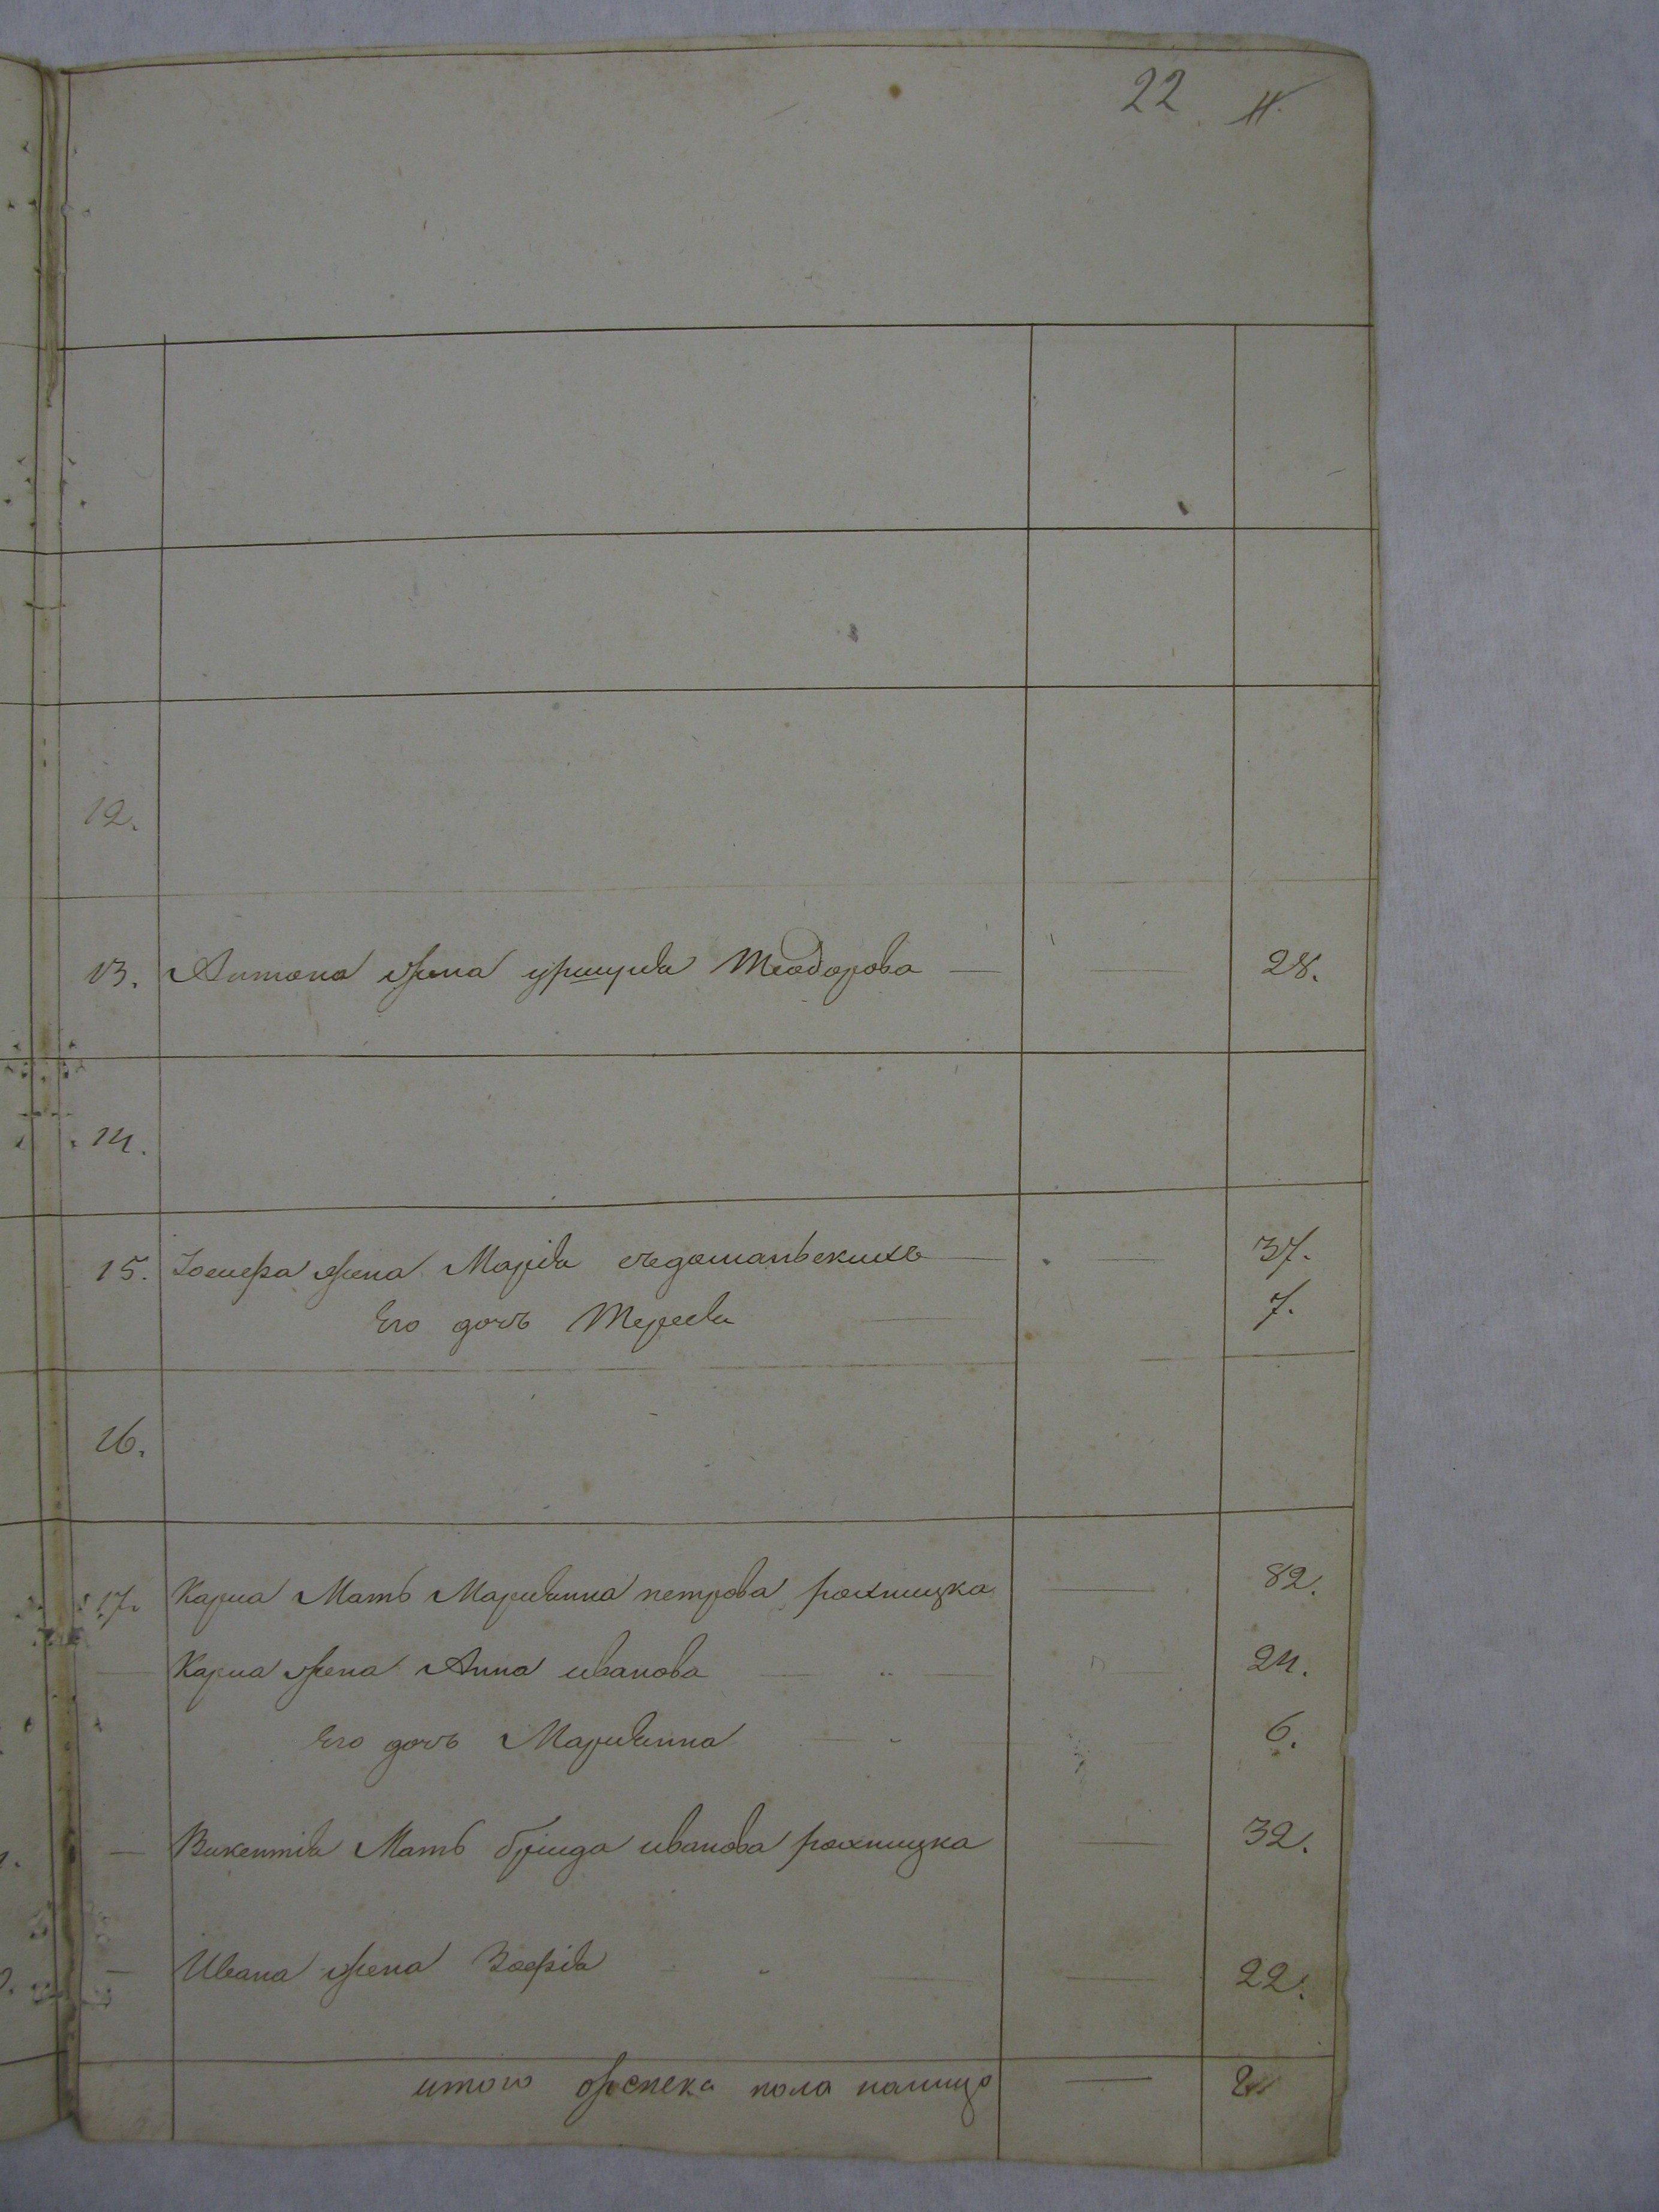 22
12.
13. Антона жена уршуля Теодорова — — 28.
14.
15. Іосифа жена Марія — — 37.
Его дочь Тереса — 7.
16.
17. Карла Мать Маріанна петрова рохницка — 82.
— Карла жена Анна иванова — „ — 24.
Его дочь Маріанна — „ 6.
— Викентія Мать бригда иванова рохницка — 32.
— Ивана жена Зофія „ — — 22.
итого женска пола налицо —